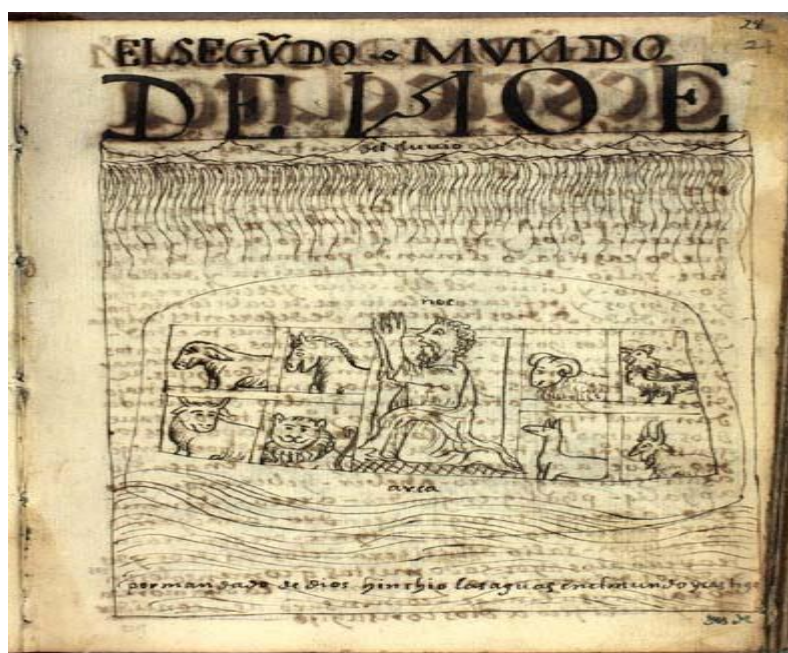 24
24
EL SEGṼDO MVNDO
DE NOE
del
noe
arca
por mandado de dios hinchio las aguas en el mundo y castigo
des de